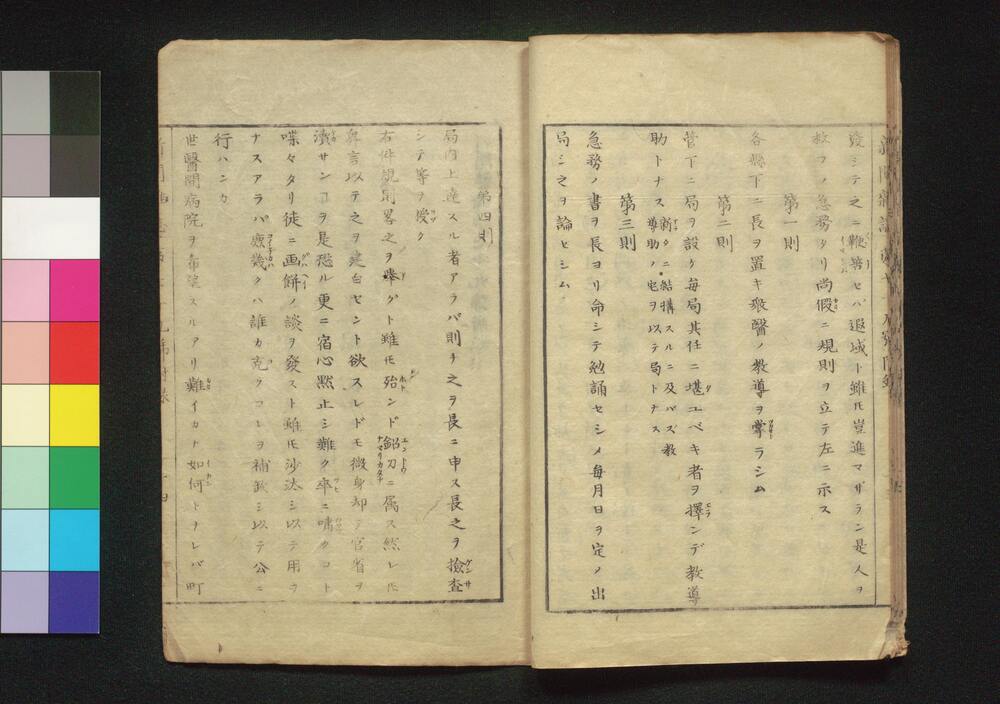 発シテ之ニ鞭策セバ退域ト雖𪜈豈進マザラン是人ヲ
教フノ急務タリ尚假ニ規則ヲ立テ左ニ示ス
第一則
各縣下ニ長ヲ置キ衆醫ノ教導ヲ掌ラシム
第二則
管下ニ局ヲ設ケ毎局其任ニ堪ユベキ者ヲ擇ンデ教導
助トナス新タニ結構スルニ及バズ教導助ノ宅ヲ以テ局トナス
第三則
急務ノ書ヲ長ヨリ命シテ勉誦セシメ毎月日ヲ定メ出
局シ之ヲ論セシム
第四則
局内上達スル者アラバ則チ之ヲ長ニ申ス長之ヲ撿査
シテ等ヲ授ク
右件規則畧之ヲ舉グト雖𪜈殆ンド鉛刀ニ属ス然レ𪜈
芻言以テ之ヲ建白セント欲スレドモ微身却テ官省ヲ
瀆サンコヲ是恐ル更ニ宿心黙止シ難ク卒ニ嘯クコト
喋々タリ徒ニ画餅ノ談ヲ發スト雖𪜈沙汰シ以テ用ヲ
ナスアラバ庶幾クハ誰カ克クコレヲ補歃シ以テ公ニ
行ハンカ
世醫開病院ヲ希望スルアリ難イカナ如何トナレバ町